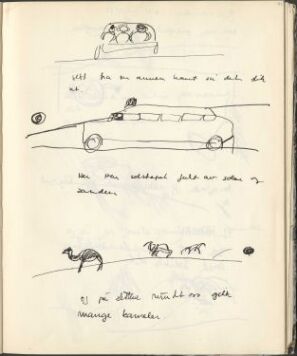 sett fra en annen kant så
ut.
Her var selskapet fullt av solen og
sanden
og på slettene rundt oss gikk
mange kameler.